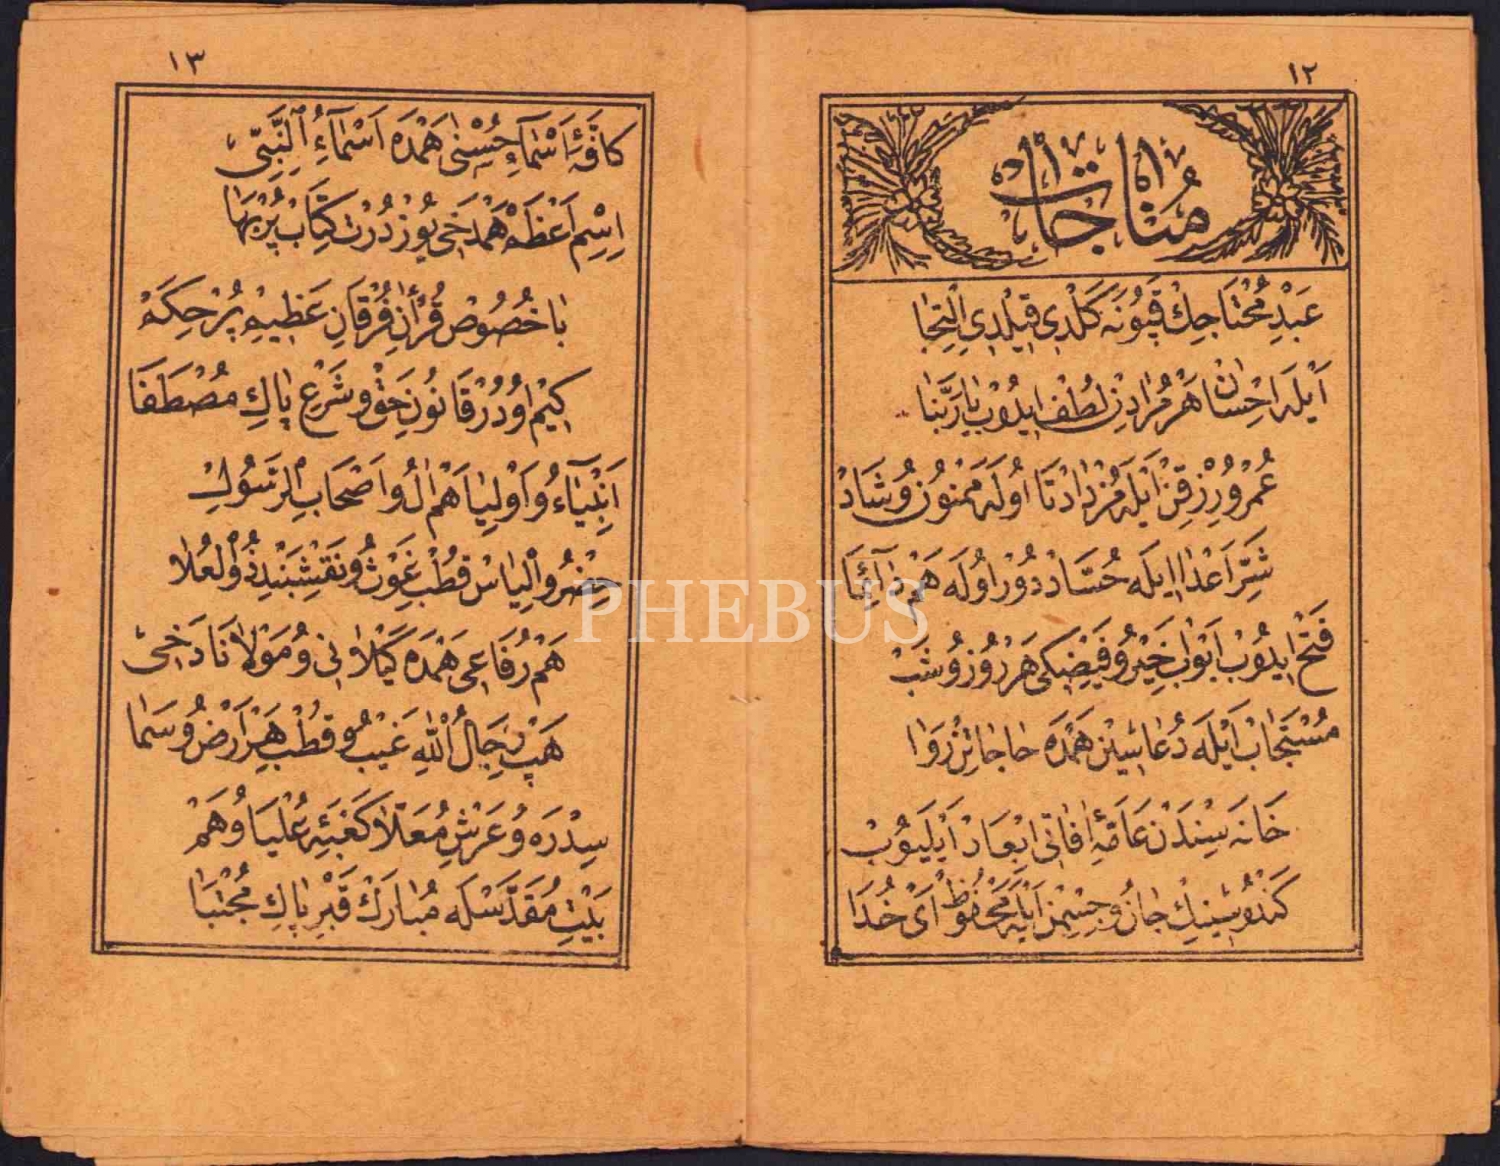 ١٢
مُنَاجَاتْ
عَبْدِ مُحْتَاجِكْ قَپُونَه كَلْدِى قِيلْدِى اِلْتِجَا
اَيْلَه اِحْسَانْ هَرْ مُرَادِنْ لُطْفْ ايدُوبْ يَا رَبَّنَا
عُمْرُ و رِزْقِنْ اَيْلَه مُزْدَادْ تَا اُولَه مَمْنُونُ و شَادْ
شَرِّ اَعْدَا ايلَه حُسَّادْ دُورْ اُولَه هَمْ دَائِمَا
فَتْحْ ايدُوبْ اَبْوَابِ خَيْرُ و فَيْضِكِى هَرْ رُوزُ و شَبْ
مُسْتَجَابْ اَيْلَه دُعَاسِينْ هَمْدَه حَاجَاتِنْ رَوَا
خَانَه سِنْدَنْ عَامَّۀِ اٰفَاتِى اِبْعَادْ اَيْلَيُوبْ
كَنْدُوسِينِكْ جَانُ و جِسْمِنْ اَيْلَه مَحْفُوظْ اَىْ خُدَا
١٣
كَافَّۀِ اَسْمَاءِ حُسْنٰى هَمْدَه اَسْمَاءُ النَّبِىّ
اِسْمِ اَعْظَمْ هَمْ دَخِى يُوزْ دُرْتْ كِتَابْ پُرْ بَهَا
بَاخُصُوصْ قُرْاٰنِ فُرْقَانِ عَظِيمِ پُرْ حِكَمْ
كِيمْ اُودُرْ قَانُونِ حَقْ و شَرْعِ پَاكِ مُصْطَفَا
اَنْبِيَاءُ و اَوْلِيَا هَمْ اٰلُ و اَصْحَابِ الرَّسُولْ
حِضْرُ و اِلْيَاسْ قُطْبِ غَوْثُ و نَقْشِبَنْدِ ذُو الْعُلَا
هَمْ رُفَاعِى هَمْدَه كَيْلَانِى و مَوْلَانَا دَخِى
هَپْ رِجَالُ اللّٰهِ غَيْبُ و قُطْبِ هَرْ اَرْضُ و سَمَا
سِدْرَه وُ عَرْشِ مُعَلَّا كَعْبَۀِ عُلْيَا وُ هَمْ
بَيْتِ مُقَدَّسْلَه مُبَارَكْ قَبْرِ پَاكِ مُجْتَبَا
PHEBUS